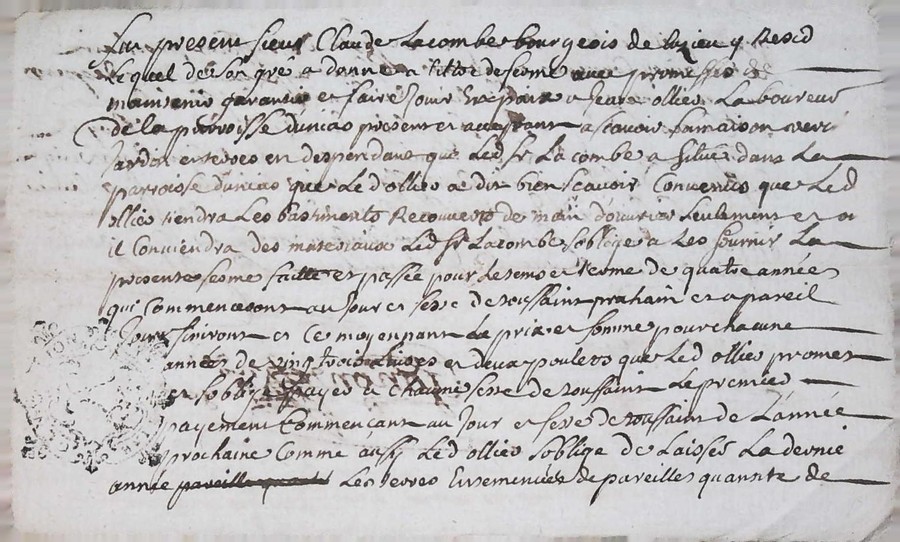 fut present sieur Claude Lacombe bourgeois de luzieu y Resid
Lequel de son gré a donne a tittre de ferme avec promesses de
maintenir garantir et faire Jouir En paix a Jean ollier Laboureur
de la parroisse duncas present et acceptant ascavoir sa maison
Jardin et terres en despendant que Led Sr Lacombe a Situes dans La
parroisse duncas que Led ollier a dit bien scavoir Convenus que Led
ollier tiendra Les bastiments Recouverts de main d'ouvrier seulement et
il Conviendra des materiaux Led Sr Lacombe soblige a Les fournir La
presente ferme faitte et passée pour Le tems et terme de quatre années
qui Commenceront au Jour et feste de toussaint prochain et a pareil
Jour finiront et Ce moyenant Le prix et somme pour chacune
année de vingt trois livres et deux poulets que Led ollier promet
et soblige payer a Chacune feste de toussaint Le premier
payement Commencant au Jour et feste de toussaint de L'année
prochaine Comme aussy Led ollier soblige de Laisser La derniere
année Les terres Ensemencées de pareille quantité de